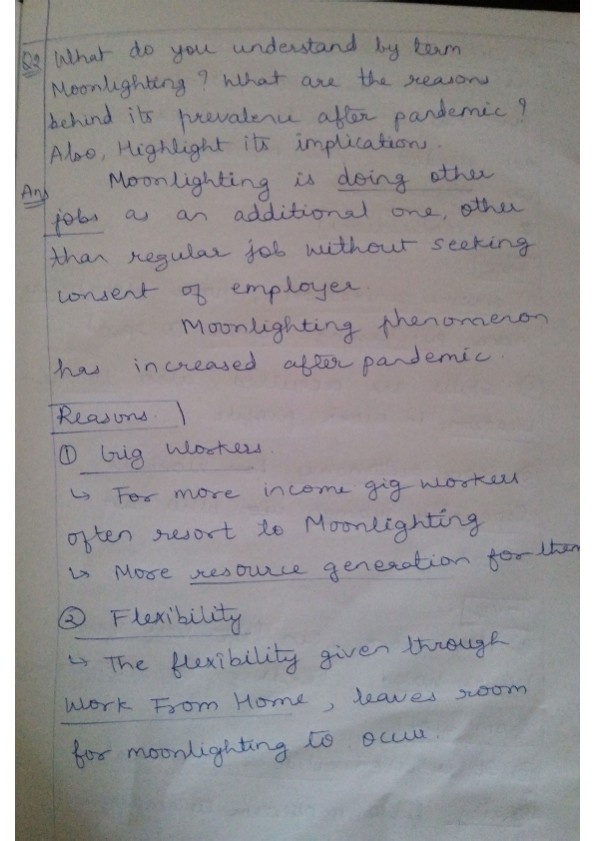 Q2 What do you understand by term
Moonlighting? What are the reasons
behind its prevalence after pandemic?
Also, Highlight its implication.
Ans Moonlighting is doing other
jobs as an additional one, other
than regular job without seeking
consent of employer.
Moonlighting phenomenon
has increased after pandemic.
Reasons.
① Gig Workers.
↳ For more income gig workers
often resort to Moonlighting
↳ More resource generation for them
② Flexibility
↳ The flexibility given through
Work From Home, leaves room
for moonlighting to occur.